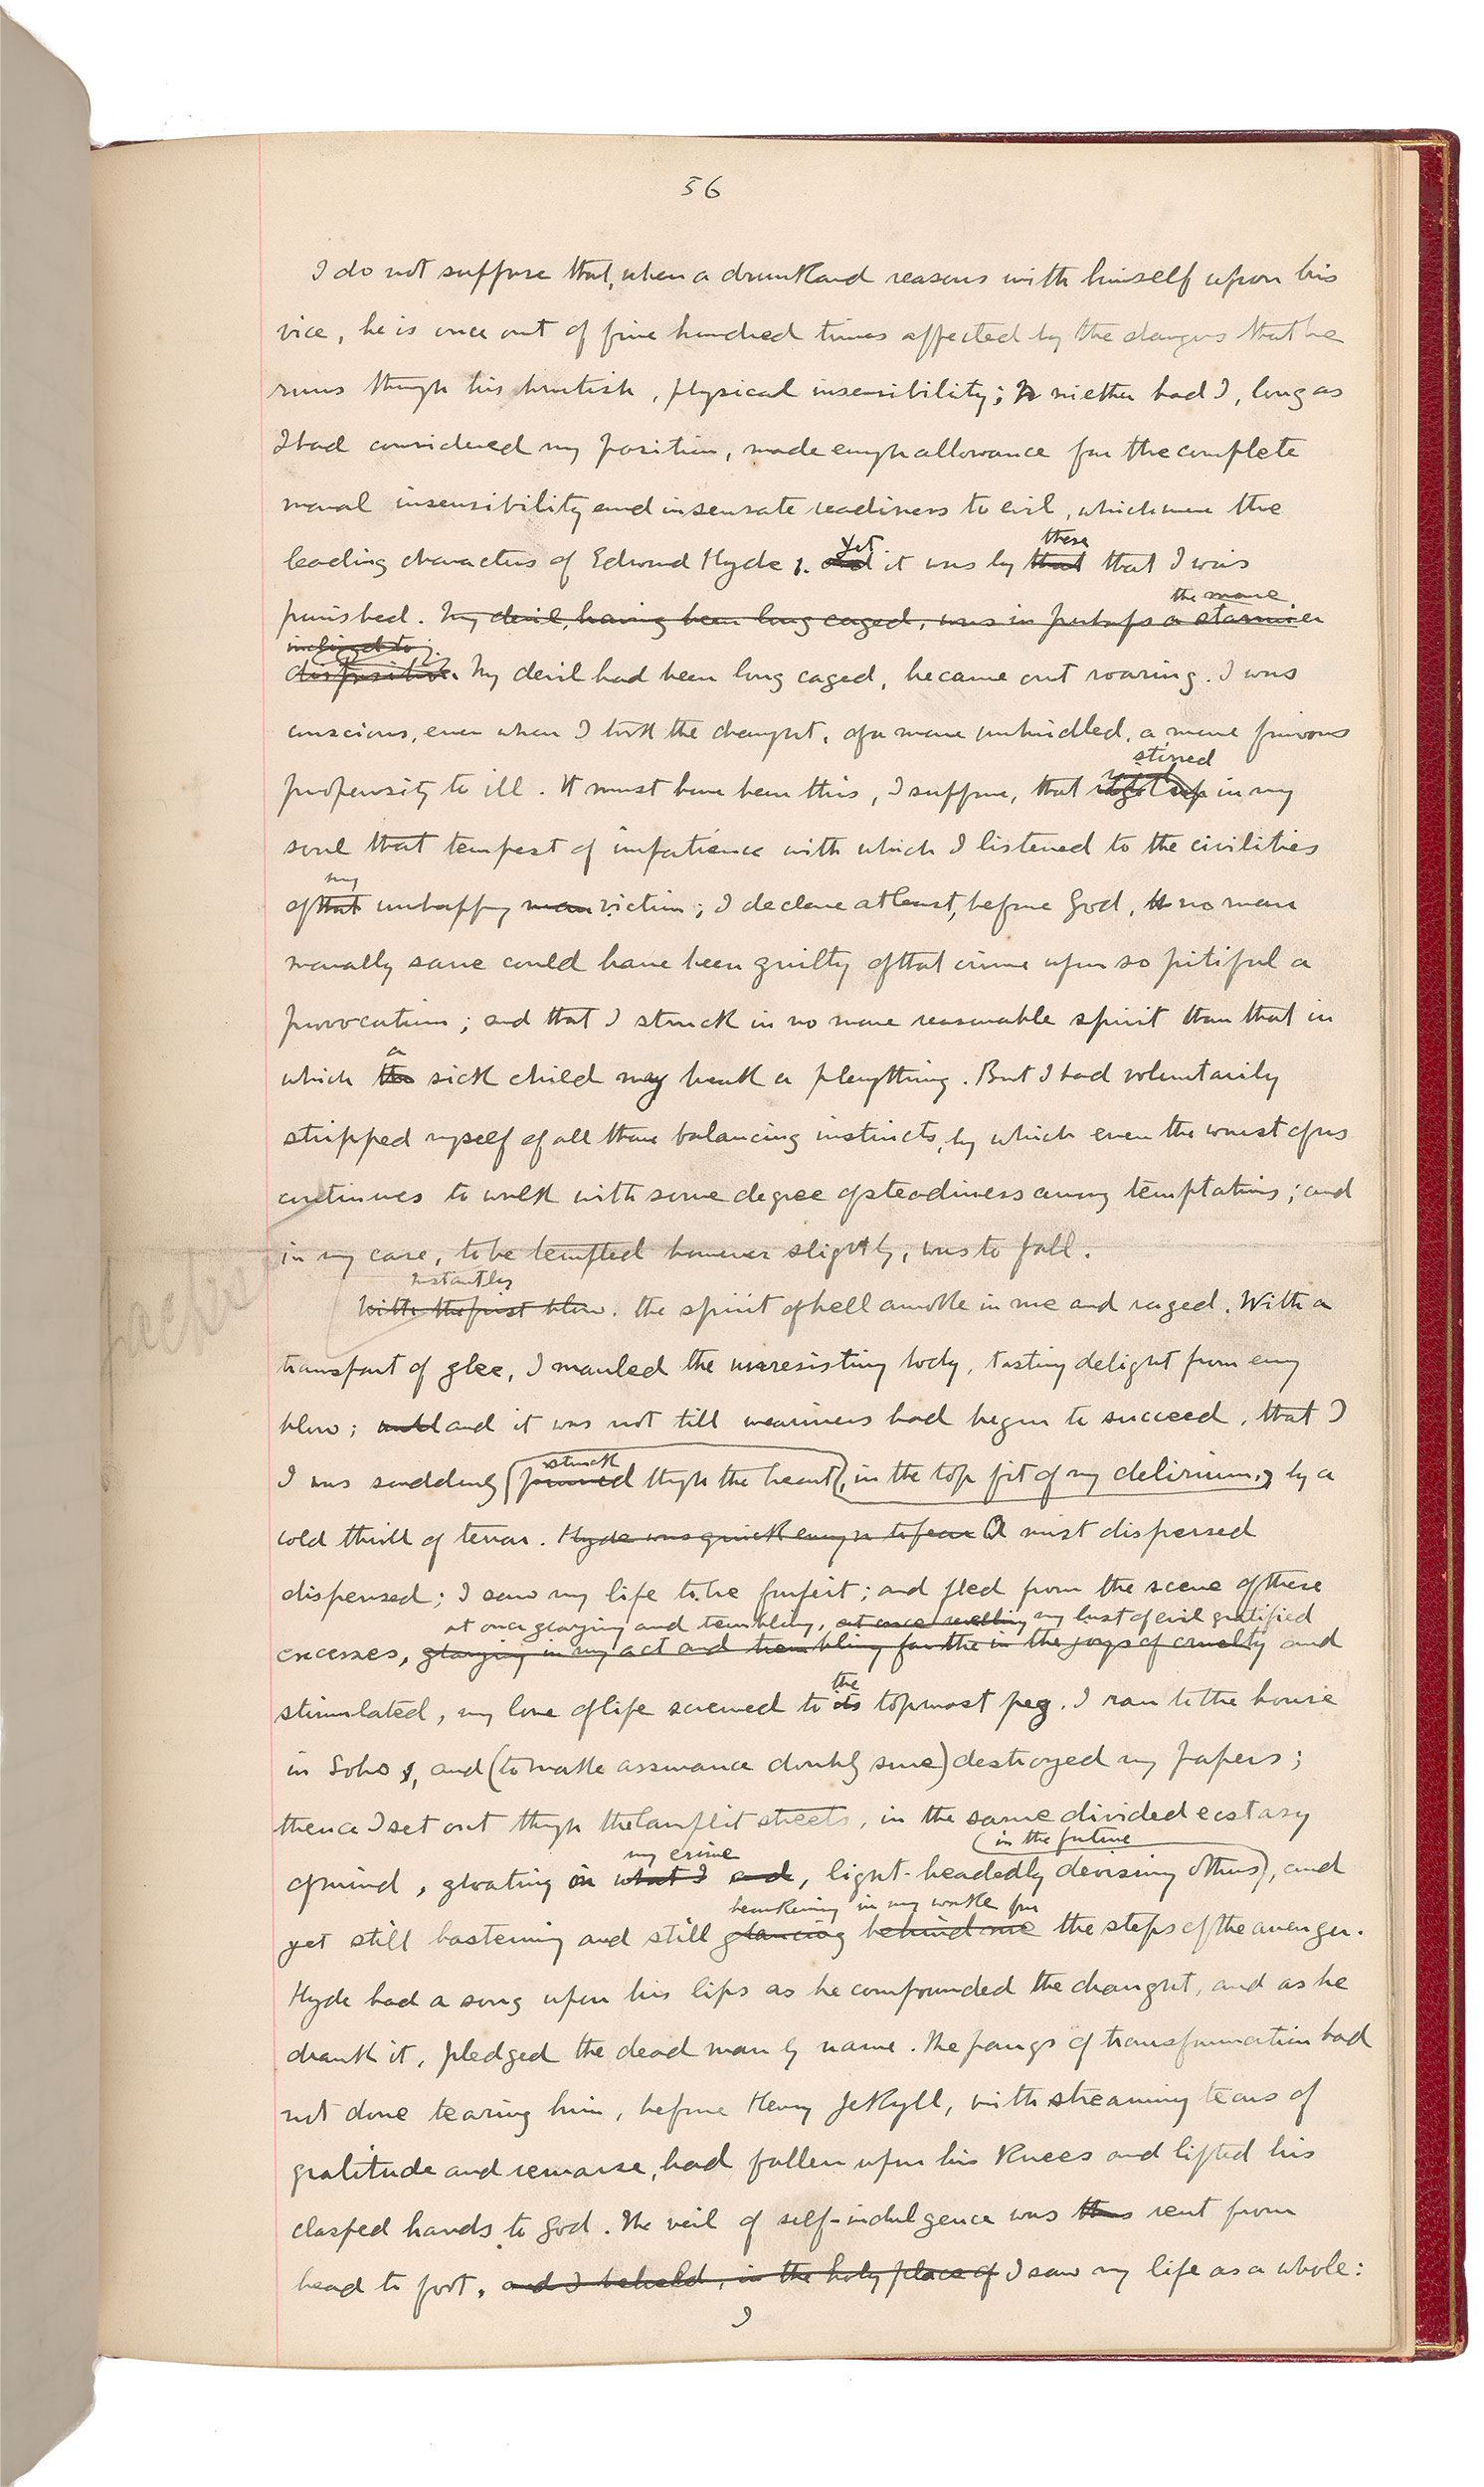 56
I do not suppose that, when a drunkard reasons with himself upon his
vice, he is once out of five hundred times affected by the dangers that he
runs through his brutish, physical insensibility; niether had I, long as
I had considered my position, made enough allowance for the complete
moral insensibility and insensate readiness to evil, which were the
yet these
leading characters of Edward Hyde. and it was by that that I was
the more
punished. My devil, having been long caged, was in perhaps a stormier
inclined to
disposition. My devil had been long caged, he came out roaring. I was
conscious, even when I took the draught, of a more unbridled, a more furious
stirred
propensity to ill. It must have been this, I suppose, that in my
soul that tempest of impatience with which I listened to the civilities
my
of that unhappy man victim; I declare at least, before God, no man
morally sane could have been guilty of that crime upon so pitiful a
provocation; and that I struck in no more reasonable spirit than that in
a
which the sick child may break a plaything. But I had voluntarily
stripped myself of all those balancing instincts, by which even the worst of us
continues to walk with some degree of steadiness among temptations; and
in my case, to be tempted however slightly, was to fall.
Instantly
With the first blow. the spirit of hell awoke in me and raged. With a
transport of glee, I mauled the unresisting body, tasting delight from every
blow; and it was not till weariness had begun to succeed, that I
struck
I was suddenly through the heart, in the top fit of my delirium, by a
cold thrill of terror. Hyde was quick enough to fear A mist dispersed
dispersed; I saw my life to be forfeit; and fled from the scene of these
at once glorying and trembling, at once my lust of evil gratified
excesses, glorying in my act and trembling for the in the joys of cruelty and
the
stimulated, my love of life screwed to its topmost peg. I ran to the house
in Soho, and (to make assurance doubly sure) destroyed my papers;
thence I set out through the lamplit streets, in the same divided ecstasy
my crime in the future
of mind, gloating on what I and, light-headedly devising others, and
hearkening in my wake for
yet still hastening and still glancing behind me the steps of the avenger.
Hyde had a song upon his lips as he compounded the draught, and as he
drank it, pledged the dead man by name. The pangs of transformation had
not done tearing him, before Henry Jekyll, with streaming tears of
gratitude and remorse, had fallen upon his knees and lifted his
clasped hands to God. The veil of self-indulgence was thus rent from
head to foot, and I beheld, in the holy place of I saw my life as a whole:
I